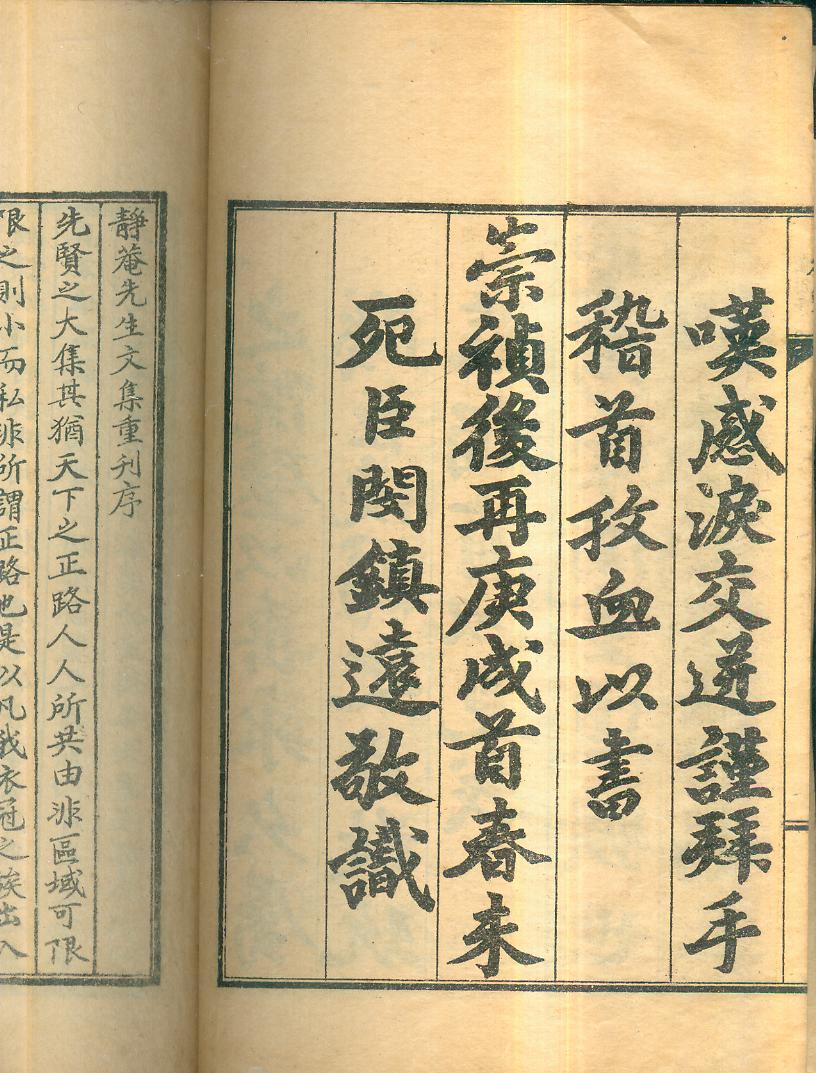 嘆感淚交迸謹拜手
稽首抆血以書
崇禎後再庚戌首春未
死臣閔鎮遠敬識
靜菴先生文集重刊序
先賢之大集其猶天下之正路人人所共由非區域可限
限之則小而私非所謂正路也是以凡我衣冠之族出入